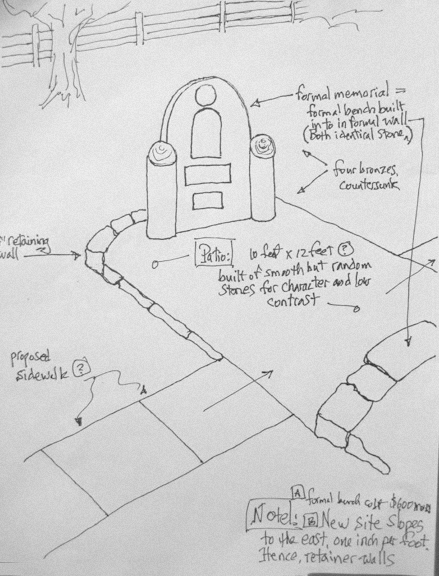 formal memorial =
formal bench built
in to informal wall
(Both identical stone)
four bronzes,
countersunk
retaining
wall
Patio: 10 feet x 12 feet ?
built of smooth but random
stones for character and low
contrast
proposed
sidewalk ?
A formal bench cost $600
Note: B New site slopes
to the east, one inch per foot.
Hence, retainer-walls